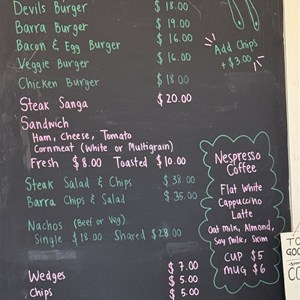 Devils Burger $18.00
Barra Burger $19.00
Bacon & Egg Burger $16.00
Veggie Burger $16.00
Chicken Burger $18.00
Add Chips
+ $3.00
Steak Sanga $20.00
Sandwich
Ham, Cheese, Tomato
Cornmeat (White or Multigrain)
Fresh $8.00 Toasted $10.00
Steak Salad & Chips $38.00
Barra Chips & Salad $35.00
Nachos (Beef or Veg)
Single $18.00 Shared $28.00
Wedges $7.00
Chips $5.00
$5.00
Nespresso
Coffee
Flat White
Cappuccino
Latte
Oat milk, Almond,
Soy milk, Skim
CUP $5
MUG $6